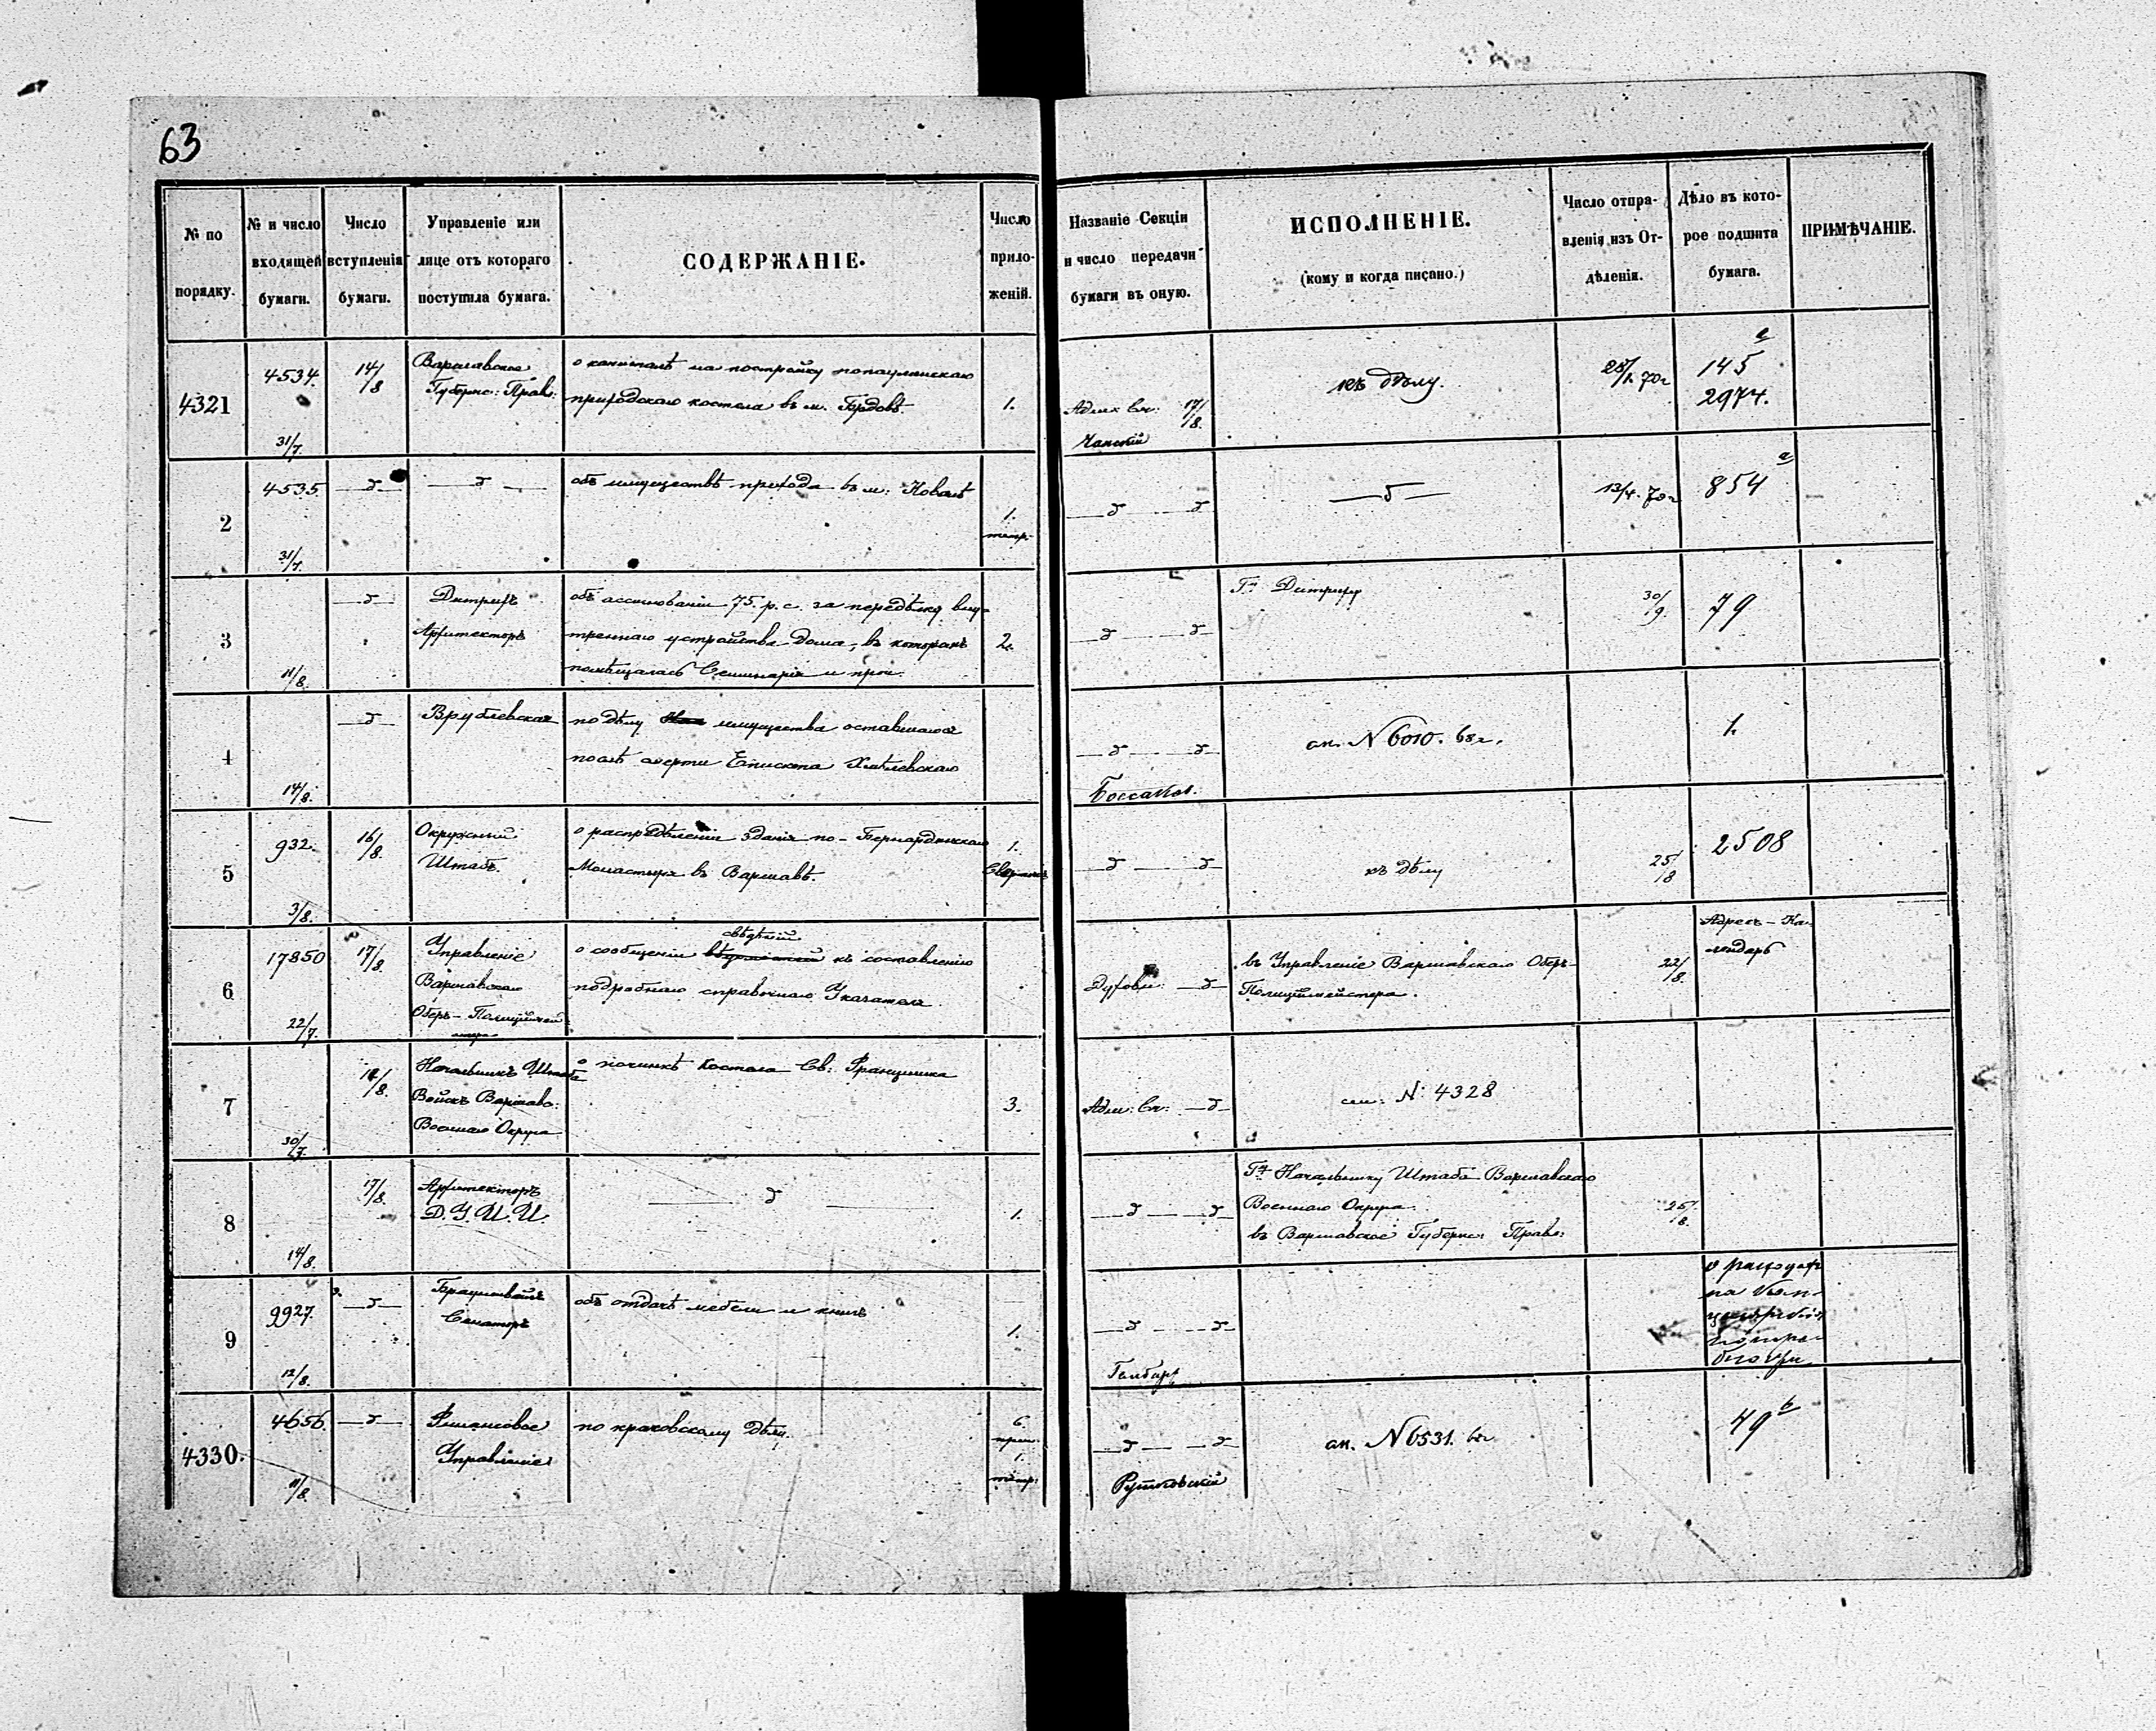 63
№ по порядку.
№ и число входящей бумаги.
Число вступленія бумаги.
Управленіе или лице отъ котораго поступила бумага.
СОДЕРЖАНІЕ.
Число приложеній.
Названіе Секціи и число передачи бумаги въ оную.
ИСПОЛНЕНІЕ.
(кому и когда писано.)
Число отправленія изъ Отдѣленія.
Дѣло въ которое подшита бумага.
ПРИМѢЧАНІЕ.
4321
4534.
31/7.
14/8
Варшавское
Губернс: Прав:
о капиталѣ на постройку
приходскаго костела въ м.
1.
17/8.
къ дѣлу.
70г
145 а
2974.
2
4535.
31/7.
—д—
—д—
объ имуществѣ прихода въ м: Ковалѣ
1.
—д— —д—
—д—
13/4. 70г
854 а
3
11/8.
—д—
Дитрихъ
Архитекторъ
объ ассигнованіи 75. р. с. за передѣлку вну-
тренняго устройства Дома, въ которомъ
помѣщалась Семинарія и проч.
2.
—д— —д—
Гну Дитриху
30/9.
79
4
14/8.
—д—
Врублевская
по дѣлу имущества оставшагося
послѣ смерти Епископа
—д— —д—
N 6010. 68г.
1.
5
932.
3/8.
16/8.
Окружный
Штабъ.
о распредѣленіи зданія по-Бернардинскаго
Монастыря въ Варшавѣ.
1.
—д— —д—
къ дѣлу
25/8
2508
6
17850
22/7.
17/8.
Управленіе
Варшавскаго
Оберъ-Полиціймей-
стера
свѣдѣній
о сообщеніи къ составленію
подробнаго справочнаго Указателя.
Духовн: —д—
въ Управленіе Варшавскаго Оберъ-
Полиціймейстера.
22/8.
Адресъ-Ка-
лендарь
7
30/7.
Начальникъ Штаба
Войскъ Варшавс:
Военнаго Округа
о починкѣ Костела Св: Франциска
3.
Адм: Сн: —д—
см: N: 4328
8
14/8.
17/8.
Архитекторъ
Д. У. И. И.
—д—
1.
—д— —д—
Гну Начальнику Штаба Варшавскаго
Военнаго Округа.
въ Варшавское Губернс: Правл:
25/8.
9
9927.
12/8.
—д—
Сенаторъ
объ отдачѣ мебели и книгъ
1.
—д— —д—
о расходах
на
4330.
4656.
11/8.
—д—
Финансовое
Управленіе
по краковскому дѣлу.
6
1.
—д— —д—
Рутковскій
N 6531.
49 b